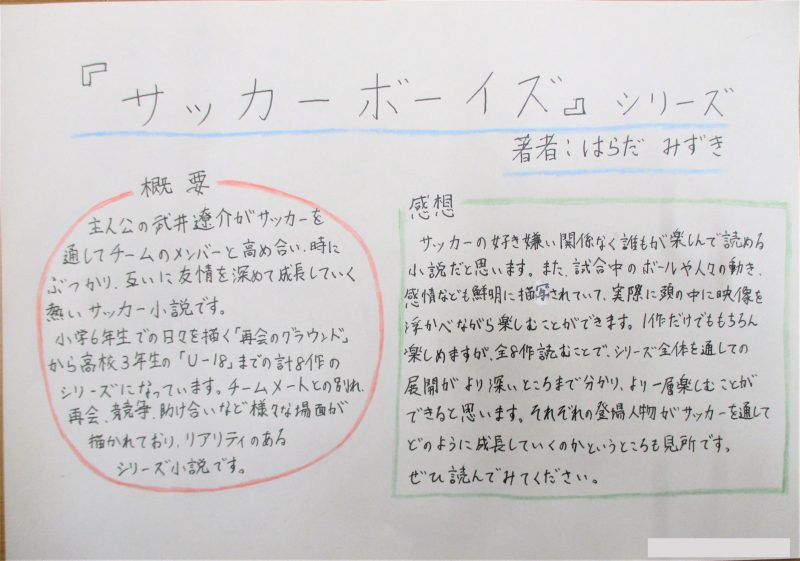 『サッカーボーイズ』シリーズ
著者：はらだ みずき
概要
主人公の武井遼介がサッカーを
通してチームのメンバーと高め合い、時に
ぶつかり、互いに友情を深めて成長していく
熱いサッカー小説です。
小学6年生での日々を描く「再会のグラウンド」
から高校3年生の「U-18」までの計8作の
シリーズになっています。チームメートとの別れ、
再会、競争、助け合いなど様々な場面が
描かれており、リアリティのある
シリーズ小説です。
感想
サッカーの好き嫌い関係なく誰もが楽しんで読める
小説だと思います。また、試合中のボールや人々の動き、
感情なども鮮明に描写されていて、実際に頭の中に映像を
浮かべながら楽しむことができます。1作だけでももちろん
楽しめますが、全8作読むことで、シリーズ全体を通しての
展開がより深いところまで分かり、より一層楽しむことが
できると思います。それぞれの登場人物がサッカーを通して
どのように成長していくのかというところも見所です。
ぜひ読んでみてください。